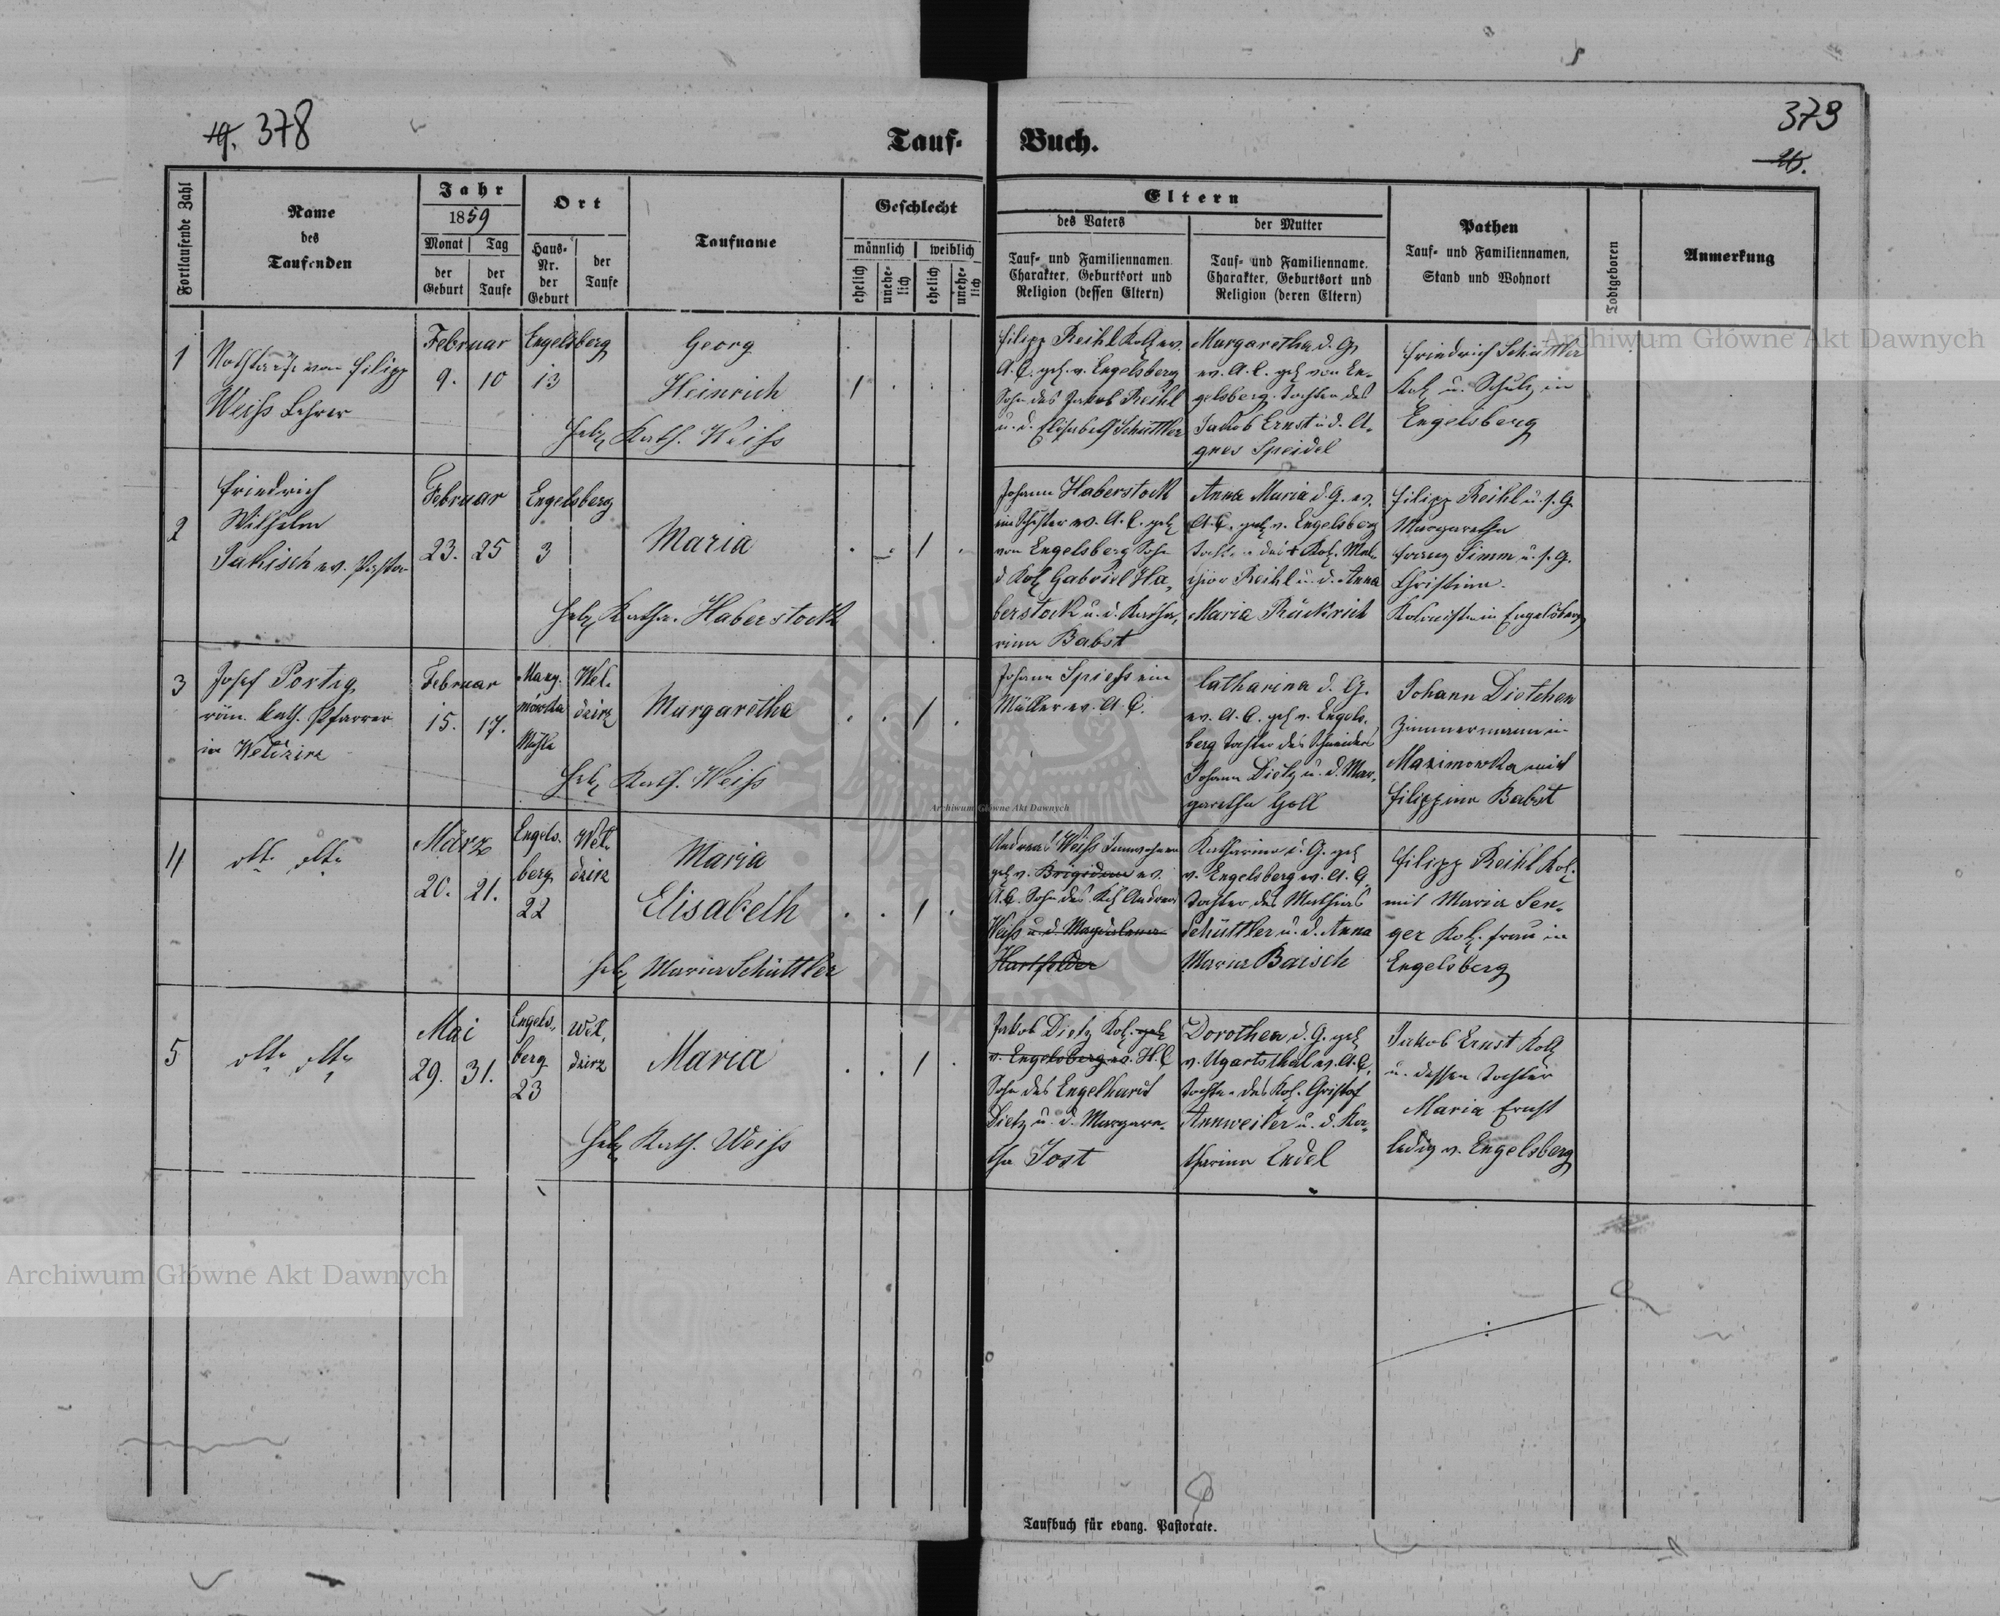 19. 378
Tauf-
Buch.
379
Fortlaufende Zahl
Name
des
Taufenden
Jahr
1859
Monat
Tag
der
Geburt
der
Taufe
Ort
Haus-
Nr.
der
Geburt
der
Taufe
Taufname
Geschlecht
männlich
weiblich
ehelich
unehe-
lich
ehelich
unehe-
lich
Eltern
des Vaters
Tauf- und Familiennamen
Charakter, Geburtsort und
Religion (dessen Eltern)
der Mutter
Tauf- und Familienname,
Charakter, Geburtsort und
Religion (deren Eltern)
Pathen
Tauf- und Familiennamen,
Stand und Wohnort
Todtgeboren
Anmerkung
1
Nothtaufe von Filipp
Weiss Lehrer
Februar
9. 10
Engelsberg
13
Georg
Heinrich
1
Heb. Kath. Weiss
Filipp Reihl Kol. ev.
A. C. geb. v. Engelsberg
Sohn des Jakob Reihl
u. d. Elisabeth Schüttler
Margaretha d. G.
ev. A. C. geb. von En-
gelsberg Tochter des
Jakob Ernst u. d. A-
gnes Speidel
Friedrich Schüttler
Kol. u. Schulz in
Engelsberg
2
Friedrich
Wilhelm
Jakisch ev. Pastor
Februar
23. 25
Engelsberg
3
Maria
1
Heb. Katha. Haberstock
Johann Haberstock
ev. A. C. geb.
von Engelsberg Sohn
d. Kol. Gabriel Ha-
berstock u. d. Katha-
rina Babst
Anna Maria d. G. ev.
A. C. geb. v. Engelsberg
Tochter des Kol. Mel-
chior Reihl u. d. Anna
Maria Rückrich
Filipp Reihl u. s. G.
Margaretha
Franz Simm u. s. G.
Christina.
Kolonisten in Engelsberg
3
Josef Portig
röm. kath. Pfarrer
in Weldzirz
Februar
15. 17.
Maxy-
mówka
Mühle
Wel-
dzirz
Margaretha
1
Heb. Kath. Weiss
Johann Spiess ein
Müller ev. A. C.
Catharina d. G.
ev. A. C. geb. v. Engels-
berg Tochter des Schneiders
Johann Dietz u. d. Mar-
garetha Goll
Johann Dietchen
Zimmermann in
Maximowka mit
Filippina Babst
4
dtto dtto
März
20. 21.
Engels-
berg
22
Wel-
dzirz
Maria
Elisabeth
1
Heb. Maria Schüttler
Andreas Weiss Inwohner
geb. v. Brigidau ev.
A. C. Sohn des Kol. Andreas
Weiss u. d. Magdalena
Hartfelder
Katharina d. G. geb.
v. Engelsberg ev. A. C.
Tochter des Mathias
Schüttler u. d. Anna
Maria Baisch
Filipp Reihl Kol.
mit Maria Sen-
ger Kol. Frau in
Engelsberg
5
dtto dtto
Mai
29. 31.
Engels-
berg
23
Wel-
dzirz
Maria
1
Heb. Kath. Weiss
Jakob Dietz Kol. geb.
v. Engelsberg ev. H. C.
Sohn des Engelhard
Dietz u. d. Margare-
tha Jost
Dorothea d. G. geb.
v. Ugartsthal ev. A. C.
Tochter des Kol. Christof
Annweiler u. d. Ka-
tharina Endel
Jakob Ernst Kol.
u. dessen Tochter
Maria Ernst
ledig v. Engelsberg
Taufbuch für evang. Pastorate.
Archiwum Główne Akt Dawnych
Archiwum Główne Akt Dawnych
Archiwum Główne Akt Dawnych